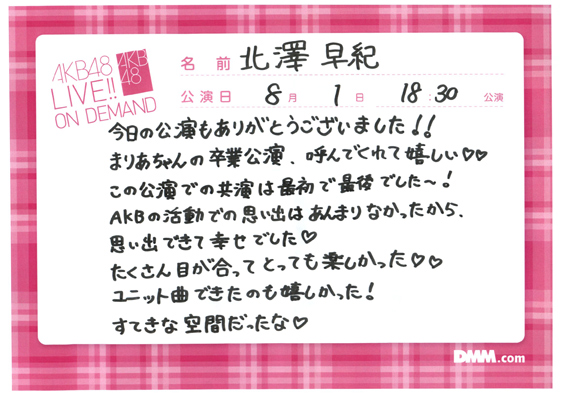 AKB48
LIVE!!
ON DEMAND
AKB
48
名前 北澤 早紀
公演日 8月 1日 18:30 公演
今日の公演もありがとうございました!!
まりあちゃんの卒業公演、呼んでくれて嬉しい♡♡
この公演での共演は最初で最後でした〜!
AKBの活動での思い出はあんまりなかったから、
思い出できて幸せでした♡
たくさん目が合ってとっても楽しかった♡♡
ユニット曲できたのも嬉しかった!
すてきな空間だったな♡
DMM.com